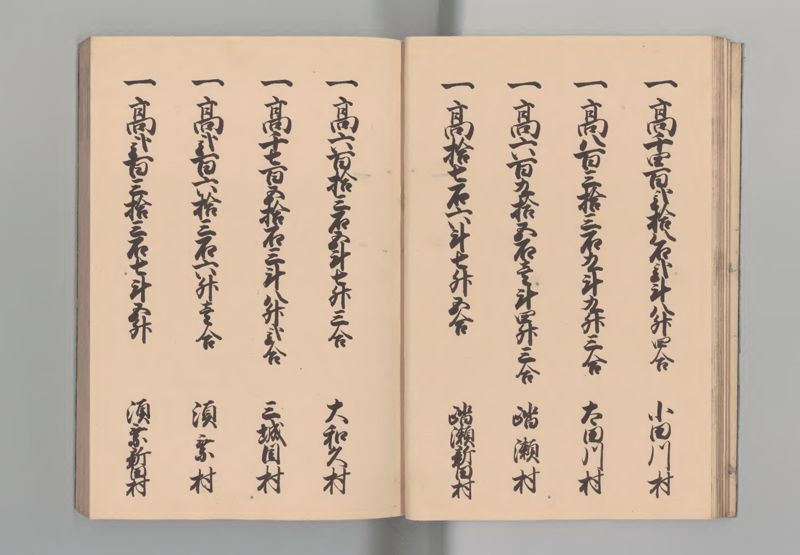 一高千四百弐拾八石弐斗八升四合 小田川村
一高八百三拾三石九斗九升三合 太田川村
一高六百九拾五石壱斗四升三合 踏瀬村
一高拾七石六斗七升五合 踏瀬新田村
一高六百拾三石五斗七升三合 大和久村
一高千七百五拾石三斗八升弐合 三城目村
一高弐百六拾三石六升壱合 須乗村
一高弐百三拾三石七斗五升 須乗新田村